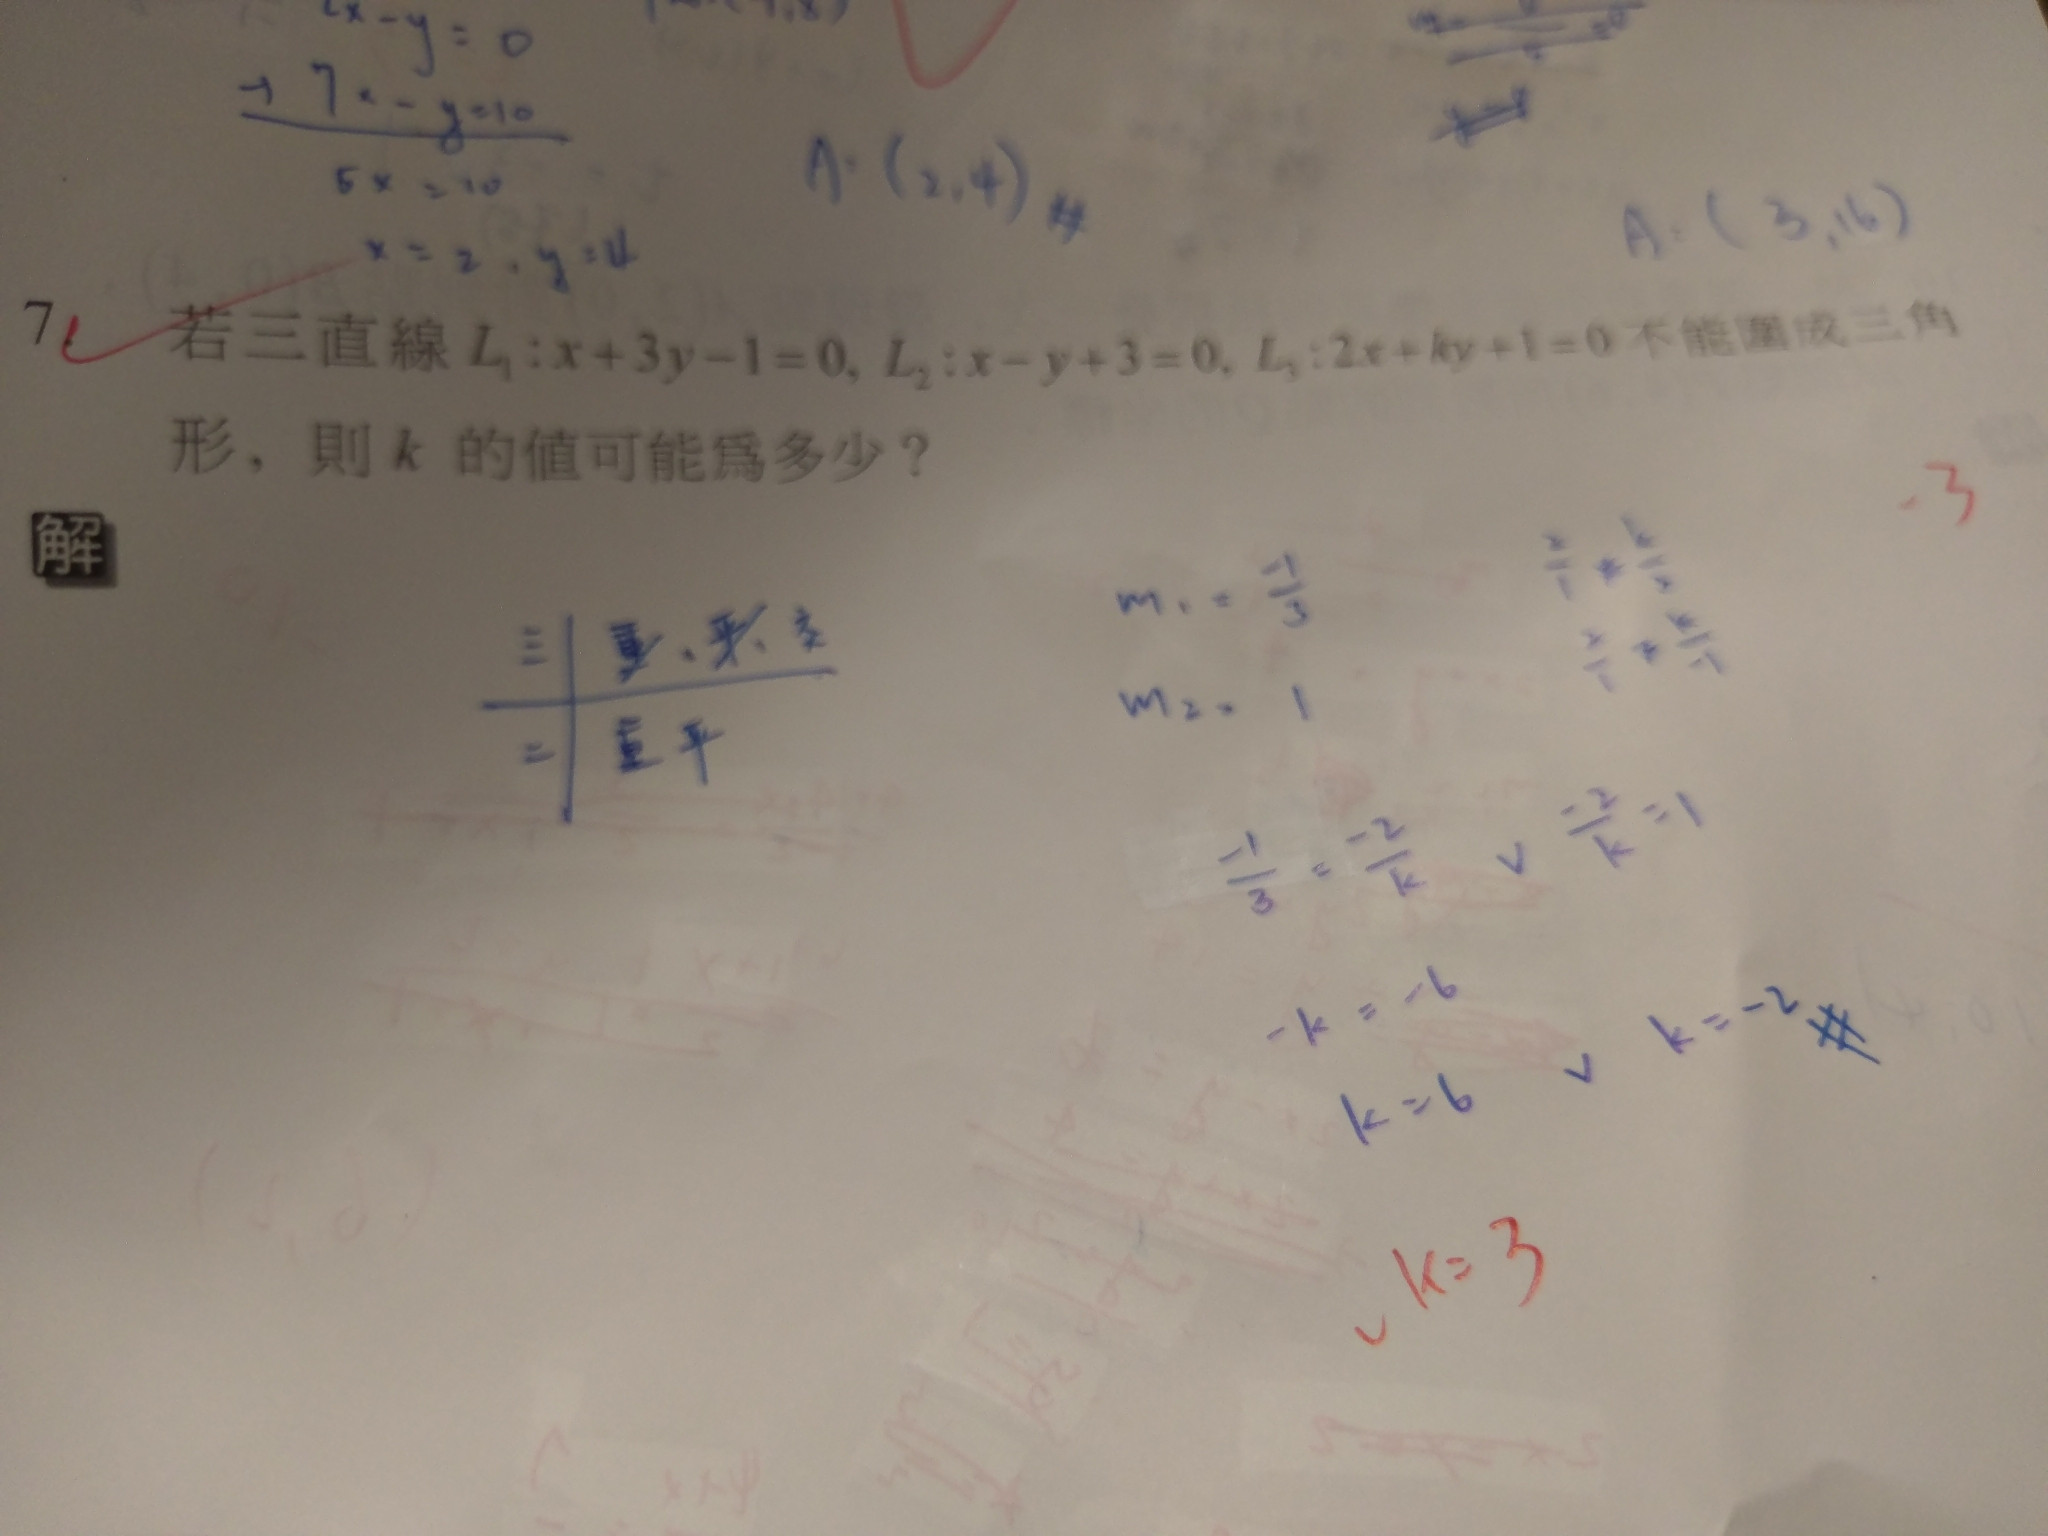 2x-y=0
-) 7x-y=10
5x=10
x=2, y=4
A:(2,4)#
A:(3,16)
7. 若三直線 L₁:x+3y-1=0, L₂:x-y+3=0, L₃:2x+ky+1=0 不能圍成三角
形，則 k 的值可能為多少？
-3
解
三 重、平、交
二 重 平
m₁ = -1/3
m₂ = 1
-1/3 = -2/k ∨ -2/k = 1
-k = -6
k = 6 ∨ k = -2 #
∨ k = 3